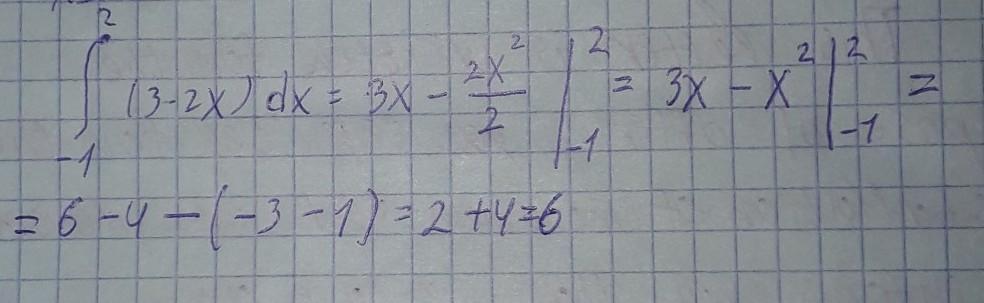 ∫₋₁² (3-2x) dx = 3x - 2x²/2 |₋₁² = 3x - x² |₋₁² =
= 6 - 4 - (-3 - 1) = 2 + 4 = 6